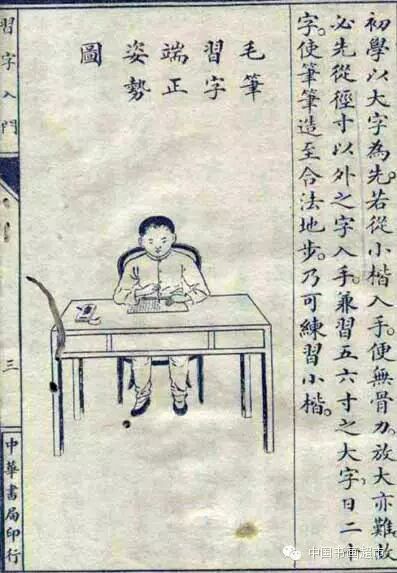 初學以大字為先。若從小楷入手。便無骨力。放大亦難。故
必先從徑寸以外之字入手。兼習五六寸之大字。日二十
字。使筆筆造至合法地步。乃可練習小楷。
毛筆
習字
端正
姿勢
圖
習字入門
三
中華書局印行
中国书画超市